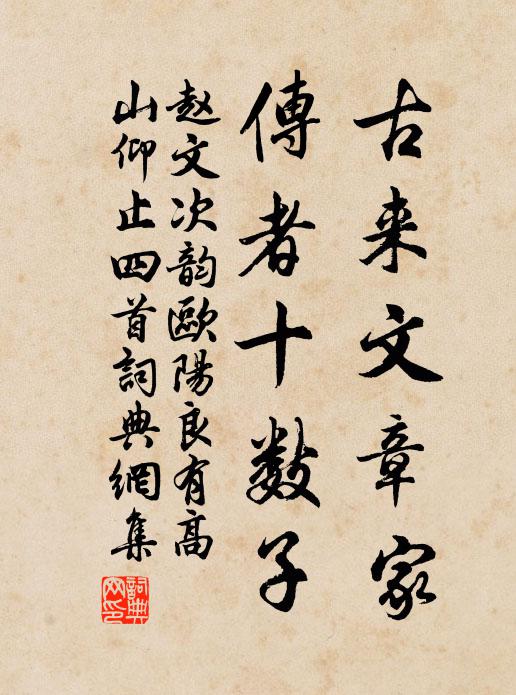 古来文章家
傳者十数子
赵文次韵歐陽良有高
山仰止四首詞典網集
詞典网印